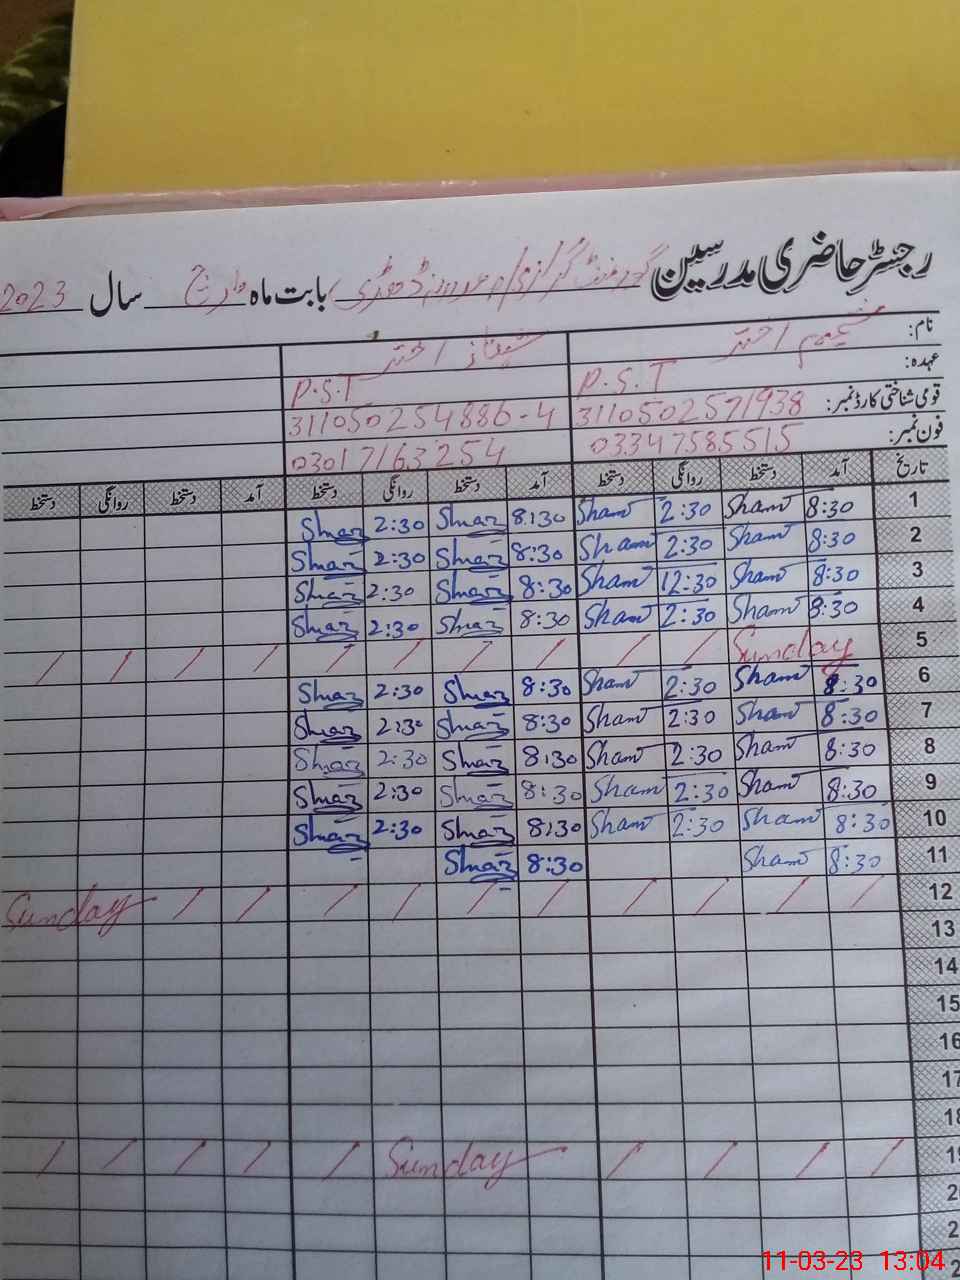 رجسٹر حاضری مدرسین گورنمنٹ گرلز بابت ماہ مارچ سال 2023
نام: شمیم اختر شہناز اختر
عہدہ: P.S.T P.S.T
قومی شناختی کارڈ نمبر: 3110502571938 311050254886-4
فون نمبر: 03347585515 03017163254
تاریخ آمد دستخط روانگی دستخط آمد دستخط روانگی دستخط آمد دستخط روانگی دستخط
1 8:30 Sham 2:30 Sham 8:30 Shnaz 2:30 Shnaz
2 8:30 Sham 2:30 Sham 8:30 Shnaz 2:30 Shnaz
3 8:30 Sham 12:30 Sham 8:30 Shnaz 2:30 Shnaz
4 8:30 Sham 2:30 Sham 8:30 Shnaz 2:30 Shnaz
5 Sunday / / / / / / / / / /
6 8:30 Sham 2:30 Sham 8:30 Shnaz 2:30 Shnaz
7 8:30 Sham 2:30 Sham 8:30 Shnaz 2:30 Shnaz
8 8:30 Sham 2:30 Sham 8:30 Shnaz 2:30 Shnaz
9 8:30 Sham 2:30 Sham 8:30 Shnaz 2:30 Shnaz
10 8:30 Sham 2:30 Sham 8:30 Shnaz 2:30 Shnaz
11 8:30 Sham 8:30 Shnaz
12 / / / / / / / / / / Sunday
13
14
15
16
17
18
19 / / / / Sunday / / / / /
11-03-23 13:04